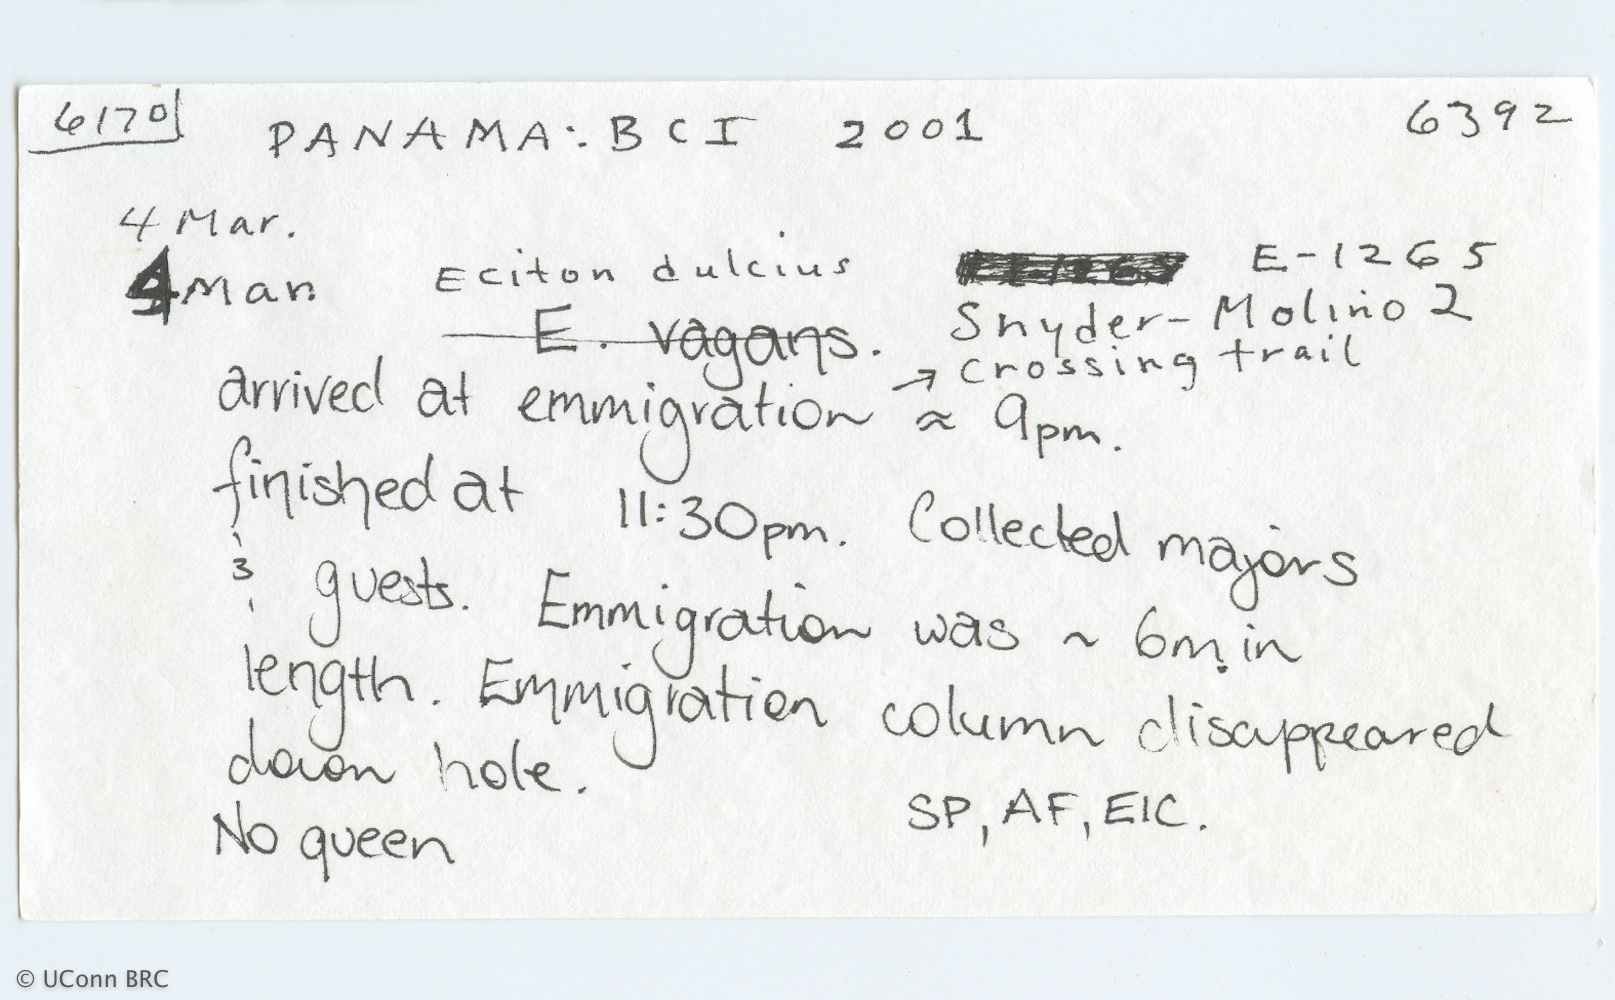 6170 PANAMA: BCI 2001 6392
4 Mar.
4 Mar. Eciton dulcius E-1265
E. vagans. Snyder-Molino 2
→ crossing trail
arrived at emmigration ≈ 9pm.
finished at 11:30pm. Collected majors
& guests. Emmigration was ~ 6m in
length. Emmigration column disappeared
down hole.
SP, AF, EIC.
No queen
© UConn BRC